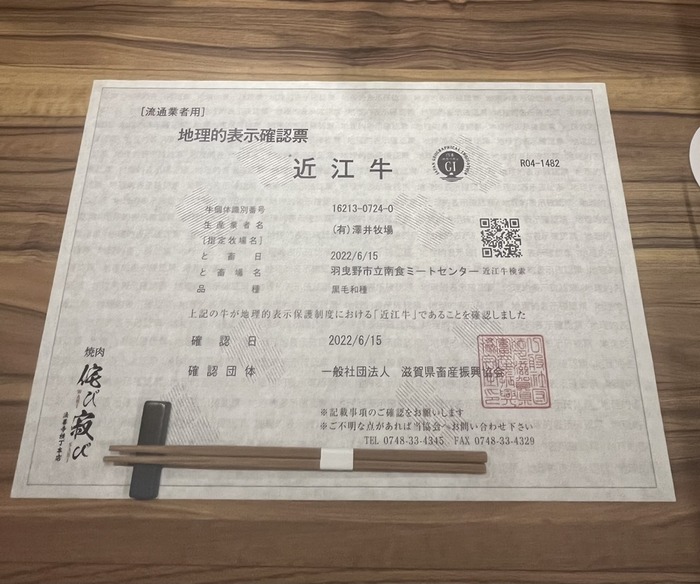 [流通業者用]
地理的表示確認票
近江牛
GI
R04-1482
牛個体識別番号 16213-0724-0
生産業者名 (有)澤井牧場
[指定牧場名]
と畜日 2022/6/15
と畜場名 羽曳野市立南食ミートセンター
近江牛検索
品種 黒毛和種
上記の牛が地理的表示保護制度における「近江牛」であることを確認しました
確認日 2022/6/15
確認団体 一般社団法人 滋賀県畜産振興協会
※記載事項のご確認をお願いします
※ご不明な点があれば当協会へお問い合わせ下さい
TEL 0748-33-4345 FAX 0748-33-4329
焼肉
侘び寂び
法善寺横丁本店